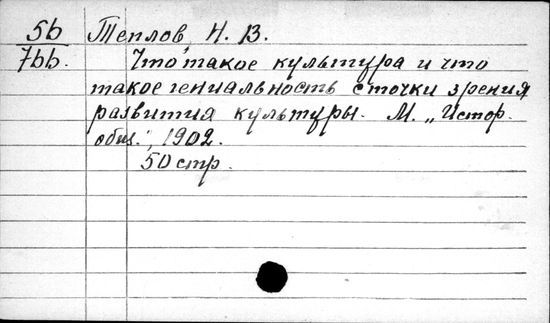 5b Теплов Н. В.
7bb. Что такое культура и что
такое гениальность с точки зрения
развития культуры. М. „Истор.
общ.", 1902.
50 стр.